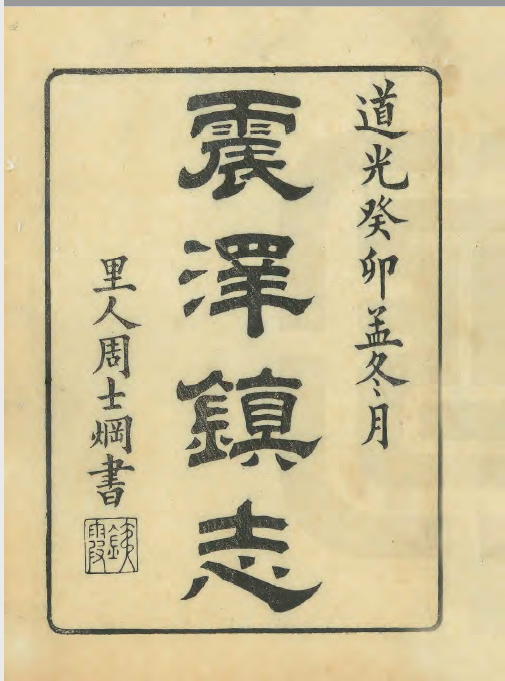 道光癸卯孟冬月
震澤鎮志
里人周士焵書